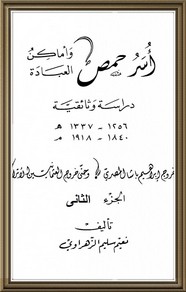 أُسَرُ حِمص وَأماكِنُ العِبَادَة
دراسة وثائقية
١٢٥٦ - ١٣٣٧ هـ
١٨٤٠ - ١٩١٨ م
خروج إبراهيم باشا المصري وحتى خروج العثمانيين الأتراك
الجزء الثاني
تأليف
نعيم سليم الزهراوي